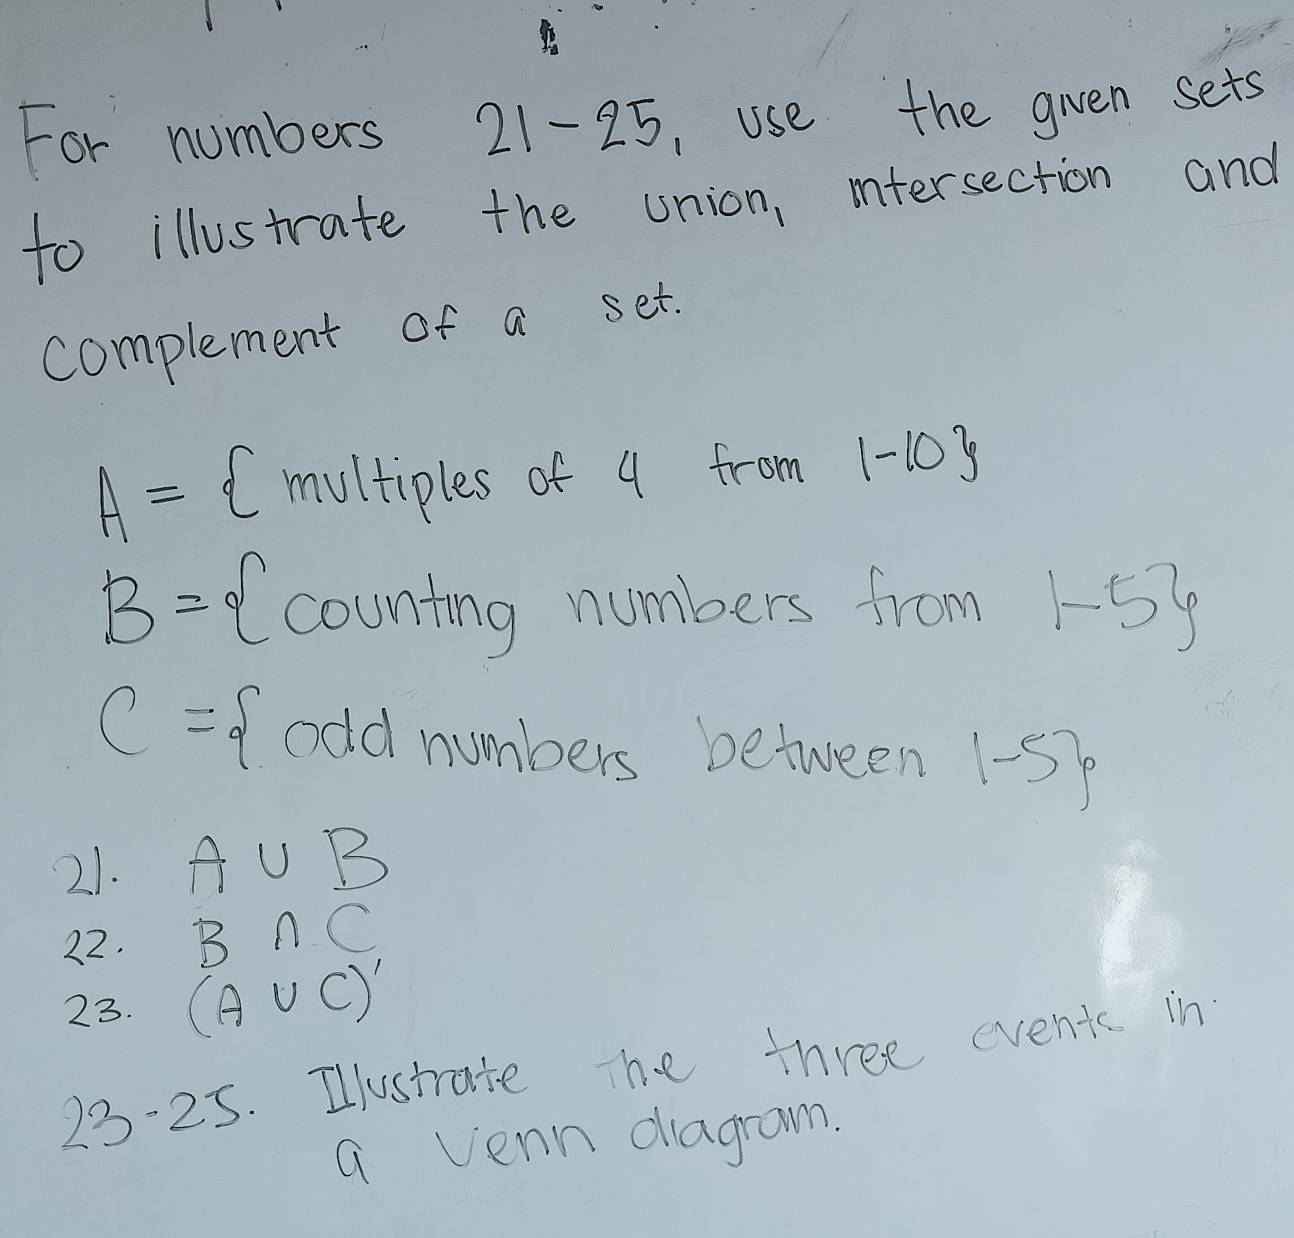 For numbers 21-25, use the given sets
to illustrate the union, intersection and
complement of a set.
A = { multiples of 4 from 1-10}
B = { counting numbers from 1-5}
C = { odd numbers between 1-5}
21. A ∪ B
22. B ∩ C
23. (A ∪ C)'
23-25. Illustrate the three events in
a venn diagram.